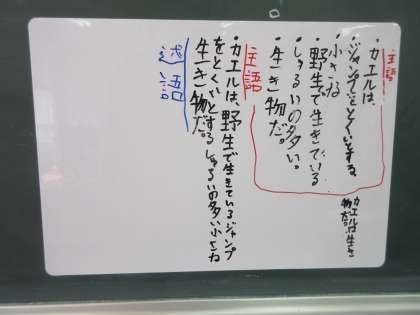 主語
・カエルは、
・ジャンプをとくいとする
・小さな
・野生で生きている
・しゅるいの多い。
・生き物だ。
カエルは生き
物だ。
主語
・カエルは、野生で生きているジャンプ
をとくいとするしゅるいの多い小さな
生き物だ。
述語